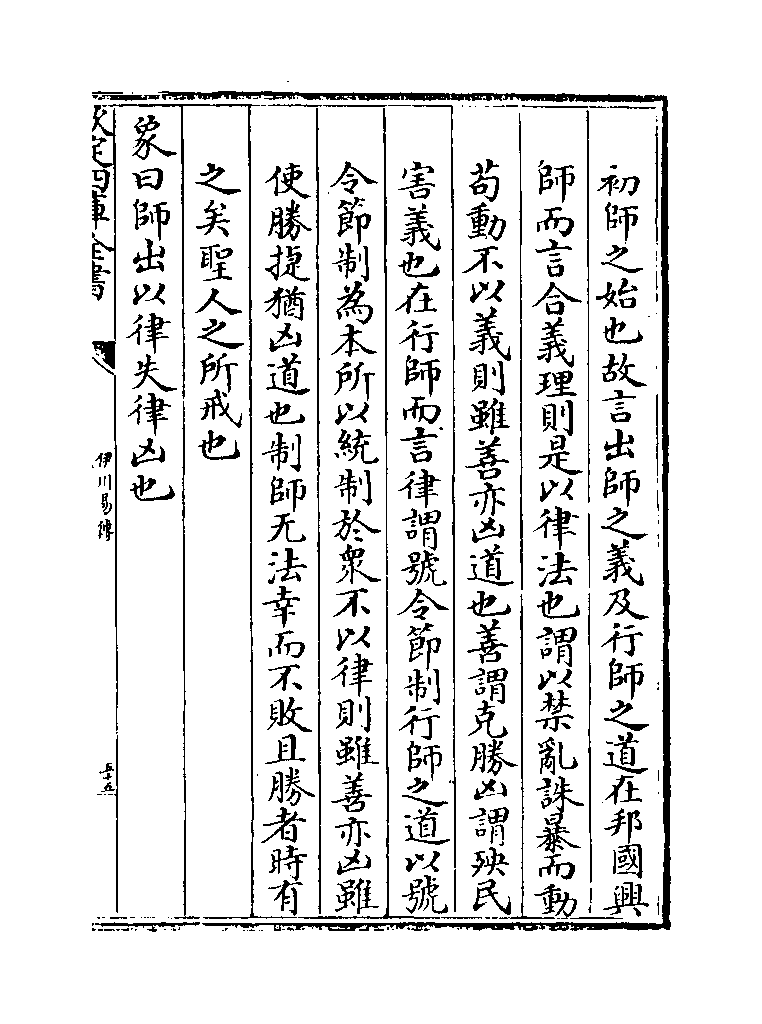 初師之始也故言出師之義及行師之道在邦國興
師而言合義理則是以律法也謂以禁亂誅暴而動
苟動不以義則雖善亦凶道也善謂克勝凶謂殃民
害義也在行師而言律謂號令節制行師之道以號
令節制為本所以統制於衆不以律則雖善亦凶雖
使勝捷猶凶道也制師无法幸而不敗且勝者時有
之矣聖人之所戒也
象曰師出以律失律凶也
欽定四庫全書
伊川易傳
五十五